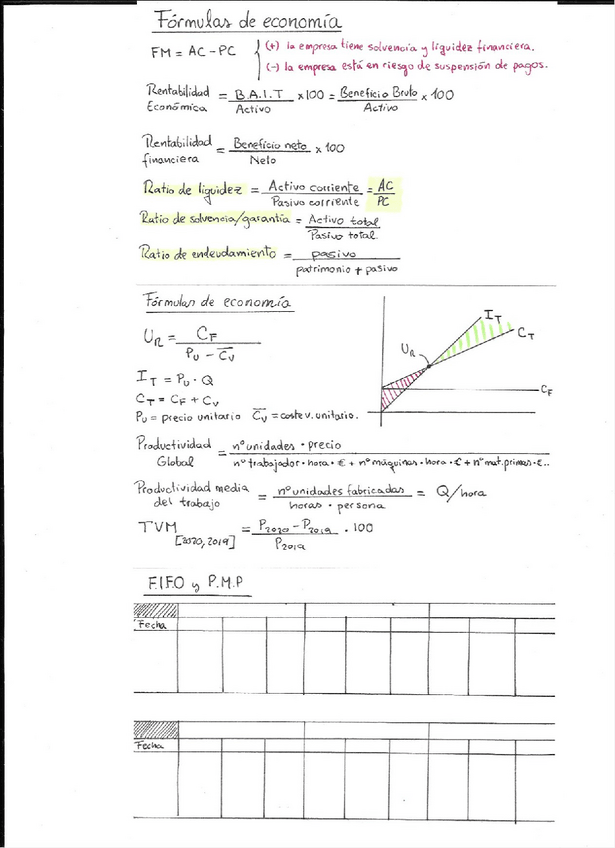 Fórmulas de economía
FM = AC - PC { (+) la empresa tiene solvencia y liquidez financiera.
(-) la empresa está en riesgo de suspensión de pagos.
Rentabilidad Económica = B.A.I.T / Activo x100 = Beneficio Bruto / Activo x 100
Rentabilidad financiera = Beneficio neto / Neto x 100
Ratio de liquidez = Activo corriente / Pasivo corriente = AC / PC
Ratio de solvencia/garantía = Activo total / Pasivo total
Ratio de endeudamiento = pasivo / patrimonio + pasivo
Fórmulas de economía
U_R = C_F / P_U - C̄_V
I_T = P_U · Q
C_T = C_F + C_V
P_U = precio unitario C̄_V = coste v. unitario.
I_T
C_T
U_R
C_F
Productividad Global = nº unidades · precio / nº trabajador · hora · € + nº máquinas · hora · € + nº mat.primas · €..
Productividad media del trabajo = nº unidades fabricadas / horas · persona = Q/hora
TVM [2020, 2019] = P2020 - P2019 / P2019 · 100
F.I.F.O y P.M.P
Fecha
Fecha